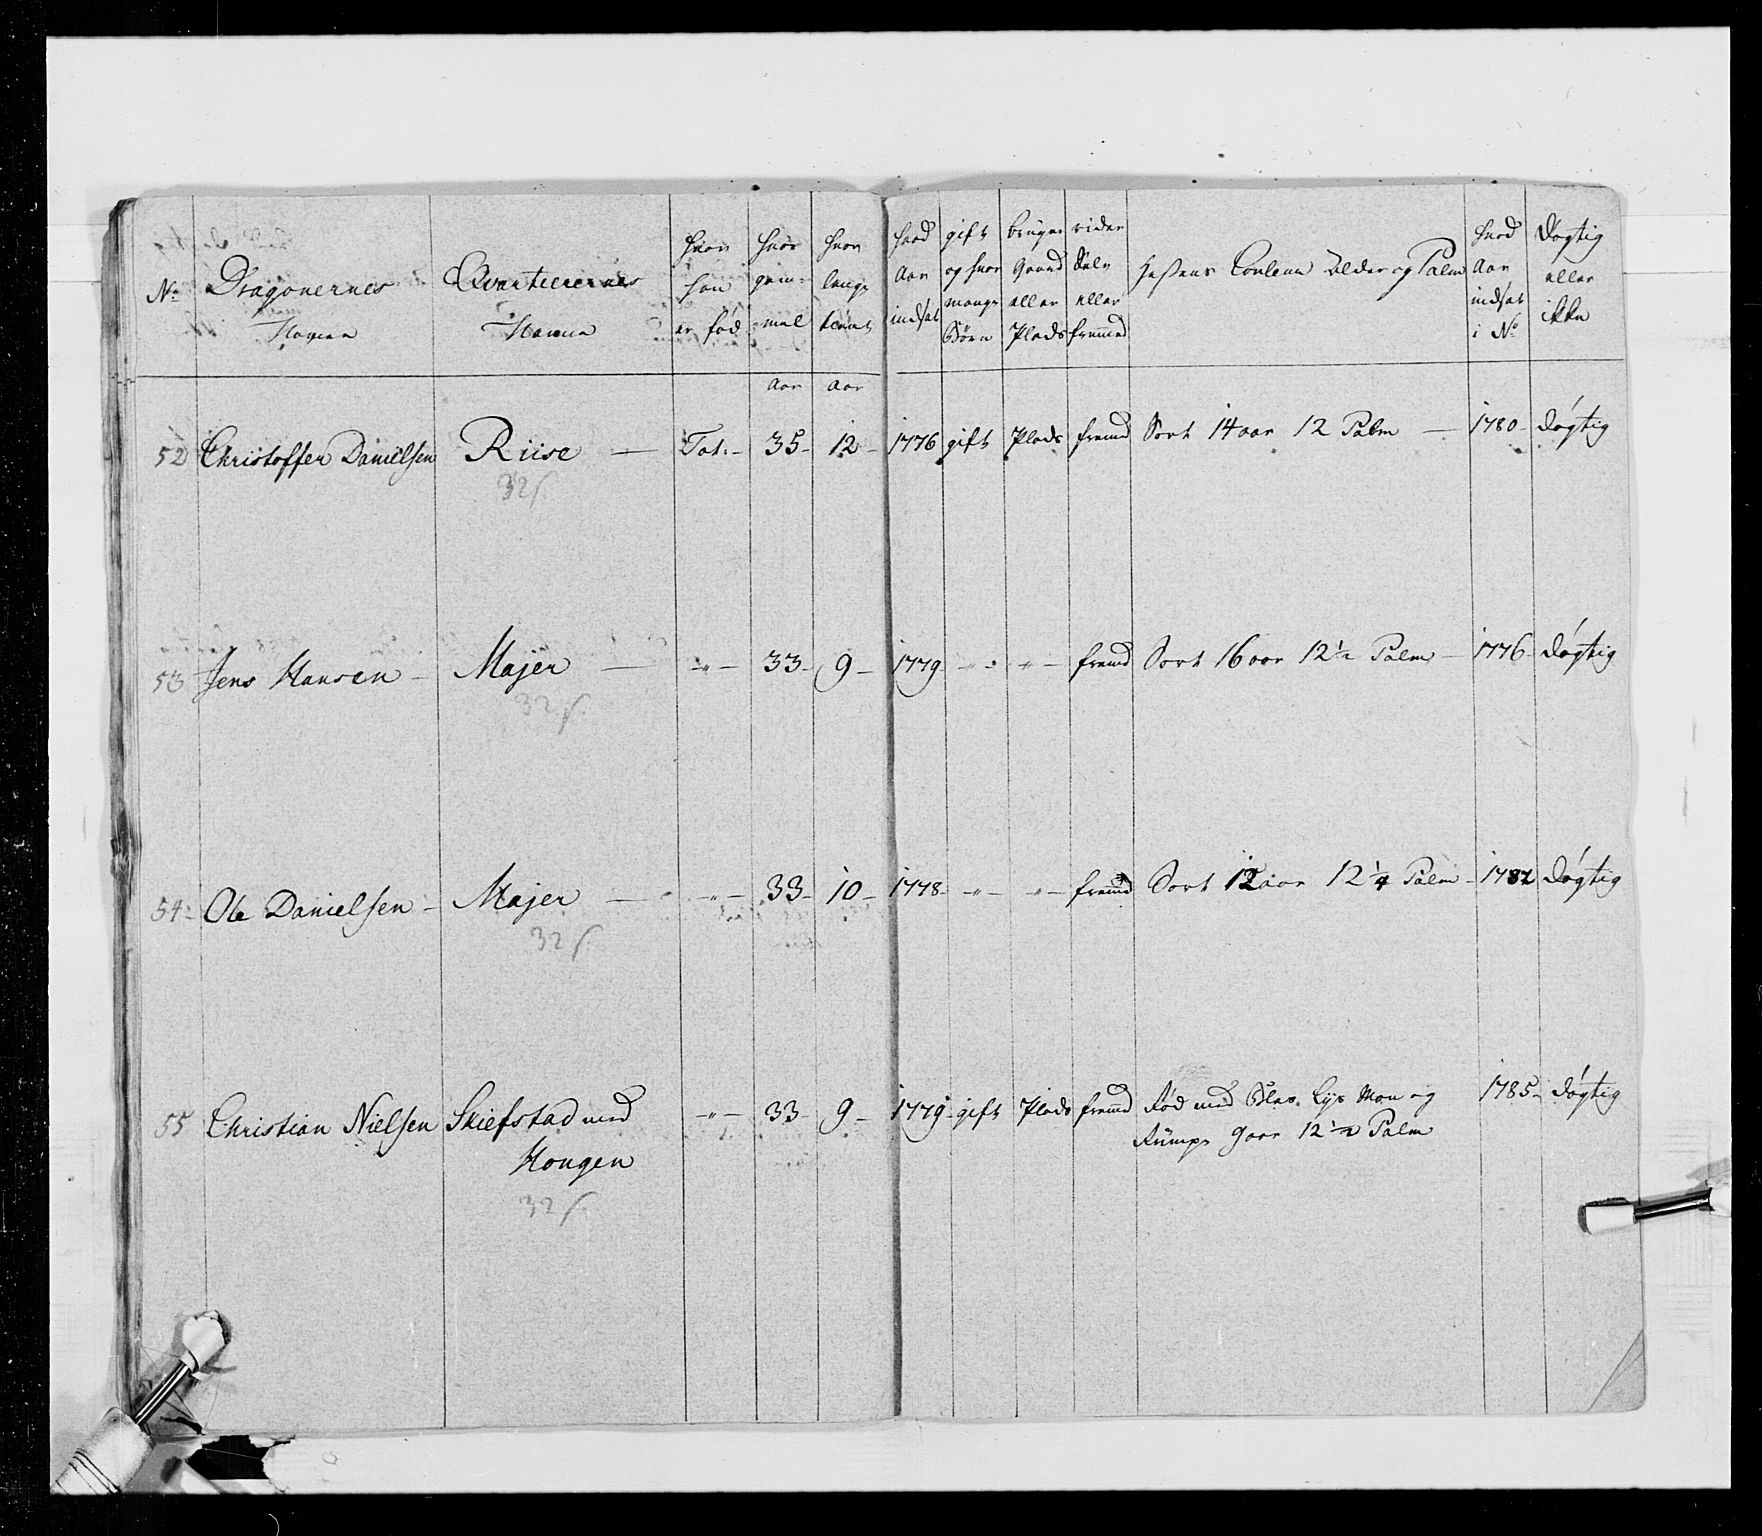 No Dragonernes Navne
Qvarteerernes Navne
hvor han er fød
hvor gam- mal
hvor lenge tient
hvad Aar indsat
gift og hvor mange Börn
bruger Gaard eller Plads
rider Selv eller fremed
Hestens Couleur Alder og Palm
hvad Aar indsat i No
Dygtig eller ikke
Aar Aar
52 Christoffer Danielsen Riise — Tot:- 35- 12- 1776 gift Plads fremd Sort 14 aar 12 Palm — 1780 døgtig
32 s.
53 Jens Hansen - Majer — -"- 33- 9- 1779 -"- -"- fremd Sort 16 aar 12½ Palm - 1776- døgtig
32 s.
54- Ole Danielsen - Majer — -"- 33- 10- 1778- -"- -"- fremd Sort 12 aar 12¼ Palm - 1782 døgtig
32 s.
55 Christian Nielsen Skiefstad med -"- 33- 9- 1779- gift Plads fremd Rød med Blis. Lys Man og 1785- døgtig
Hougen Rumpe 9 aar 12½ Palm
32 s.